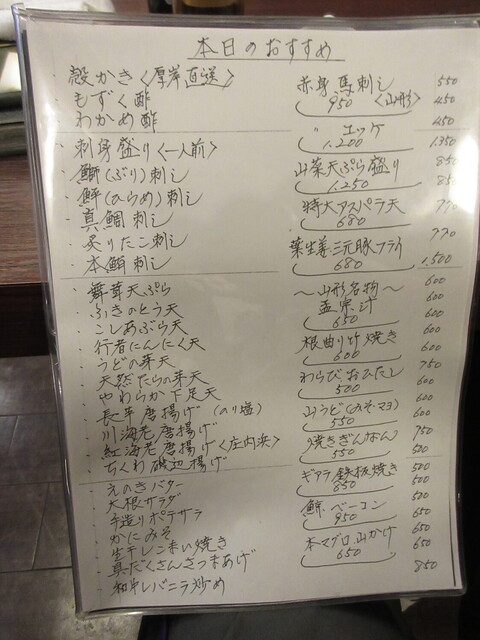 本日のおすすめ
殻かき〈厚岸直送〉
もずく酢
わかめ酢
刺身盛り〈一人前〉
鰤(ぶり)刺し
鮃(ひらめ)刺し
真鯛刺し
炙りたこ刺し
本鮪刺し
舞茸天ぷら
ふきのとう天
こしあぶら天
行者にんにく天
うどの芽天
天然たらの芽天
やわらか下足天
長芋唐揚げ(のり塩)
川海老唐揚げ
紅海老唐揚げ〈庄内浜〉
ちくわ磯辺揚げ
えのきバター
大根サラダ
手造りポテサラ
かにみそ
生干しこまい焼き
真だくさんさつまあげ
和牛レバニラ炒め
赤身馬刺し
950 〈山形〉
〃 ユッケ
1,200
山菜天ぷら盛り
1,250
特大アスパラ天
680
葉生姜三元豚フライ
680
〜山形名物〜
孟宗汁
650
根曲り竹焼き
600
わらびおひたし
500
山うど(みそ・マヨ)
550
焼きぎんなん
550
ギアラ鉄板焼き
850
鯨ベーコン
950
本マグロ山かけ
650
550
450
450
1,350
850
850
770
770
1,500
600
600
600
600
600
750
600
600
600
750
500
500
500
650
650
650
650
850